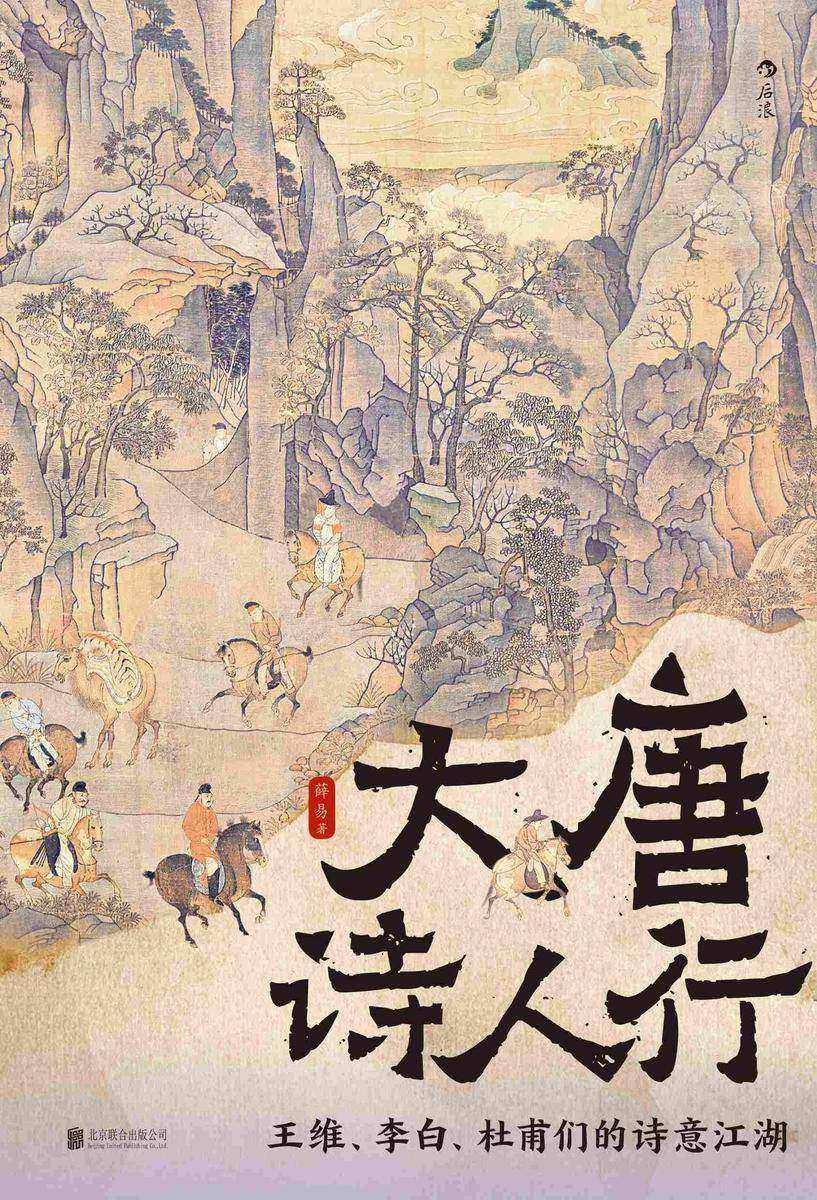 后浪
大唐
薛易 著
诗人行
王维、李白、杜甫们的诗意江湖
北京联合出版公司
Beijing United Publishing Co.,Ltd.